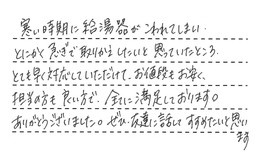 寒い時期に給湯器がこわれてしまい
とにかく急ぎで取りかえしたいと思っていたところ、
とても早く対応していただけて、お値段もお安く、
担当の方も良い方で、全てに満足しております。
ありがとうございました。ぜひ友達に話してすすめたいと思い
ます